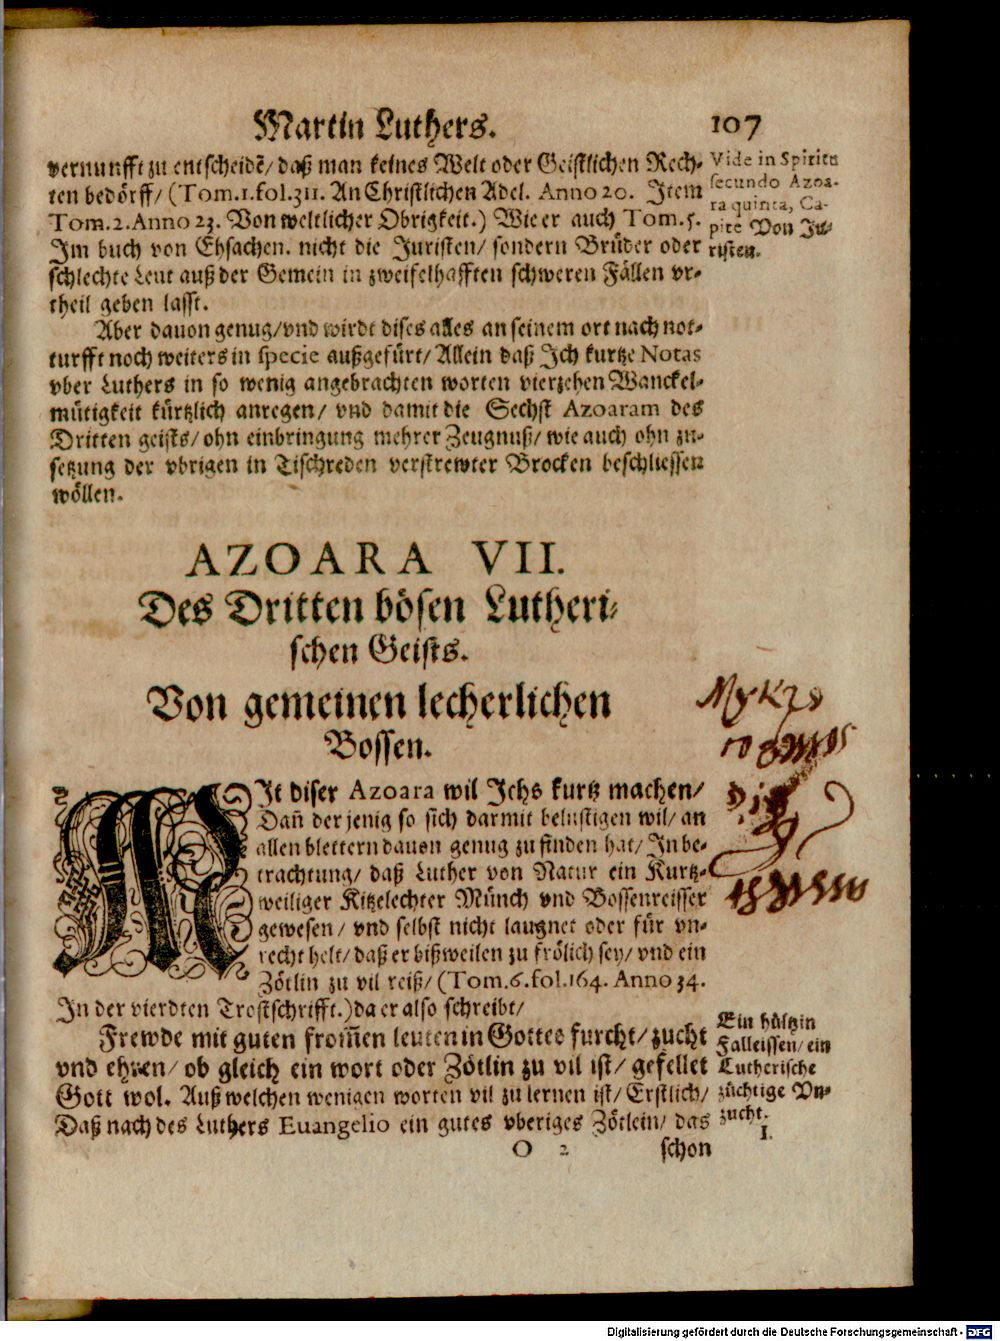 Martin Luthers. 107
vernunfft zu entscheidẽ/ daß man keines Welt oder Geistlichen Rech-
ten bedörff/ (Tom.1.fol.311. An Christlichen Adel. Anno 20. Item
Tom.2. Anno 23. Von weltlicher Obrigkeit.) Wie er auch Tom.5.
Im buch von Ehsachen. nicht die Juristen/ sondern Brüder oder
schlechte Leut auß der Gemein in zweifelhafften schweren Fällen vr-
theil geben lasst.
Vide in Spiritu
secundo Azoa-
ra quinta, Ca-
pite Von Ju-
risten.
Aber dauon genug/ vnd wirdt dises alles an seinem ort nach not-
turfft noch weiters in specie außgefürt/ Allein daß Ich kurtze Notas
vber Luthers in so wenig angebrachten worten vierzehen Wanckel-
mütigkeit kürtzlich anregen/ vnd damit die Sechst Azoaram des
Dritten geists/ ohn einbringung mehrer Zeugnuß/ wie auch ohn zu-
setzung der vbrigen in Tischreden verstrewter Brocken beschliessen
wöllen.
AZOARA VII.
Des Dritten bösen Lutheri-
schen Geists.
Von gemeinen lecherlichen
Bossen.
MIt diser Azoara wil Ichs kurtz machen/
Dañ der jenig so sich darmit belustigen wil/ an
allen blettern dauon genug zu finden hat/ In be-
trachtung/ daß Luther von Natur ein Kurtz-
weiliger Kitzelechter Münch vnd Bossenreisser
gewesen/ vnd selbst nicht laugnet oder für vn-
recht helt/ daß er bißweilen zu frölich sey/ vnd ein
Zötlin zu vil reiß/ (Tom.6.fol.164. Anno 34.
In der vierdten Trostschrifft.) da er also schreibt/
Frewde mit guten from̃en leuten in Gottes furcht/ zucht
vnd ehren/ ob gleich ein wort oder Zötlin zu vil ist/ gefellet
Gott wol. Auß welchen wenigen worten vil zu lernen ist/ Erstlich/
Daß nach des Luthers Euangelio ein gutes vberiges Zötlein/ das
Ein hültzin
Falleissen/ ein
Lutherische
züchtige Vn-
zucht.
1.
O 2 schon
Digitalisierung gefördert durch die Deutsche Forschungsgemeinschaft - DFG